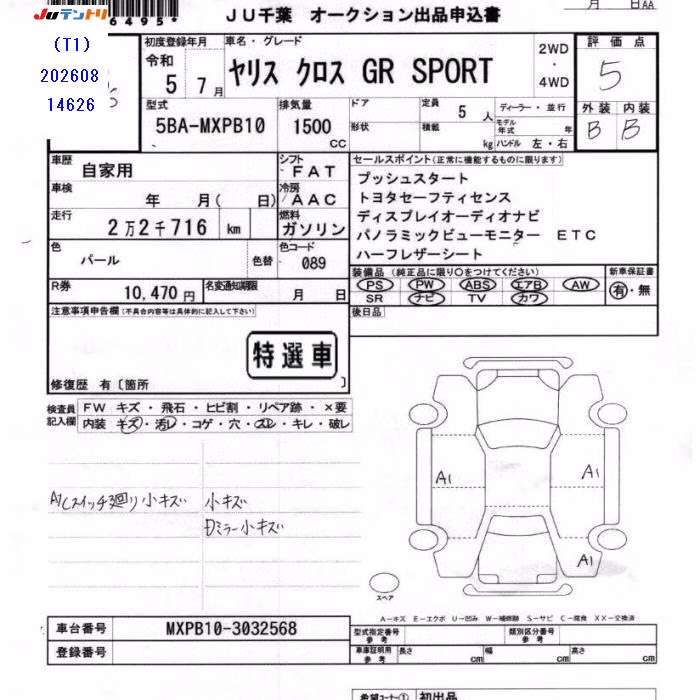 JUテントリ
6495
(T1)
202608
14626
JU千葉 オークション出品申込書
月 日AA
初度登録年月
令和
5 7月
車名・グレード
ヤリス クロス GR SPORT
2WD
・
4WD
評価点
5
外装 内装
B B
型式
5BA-MXPB10
排気量
1500
CC
ドア
形状
定員
5人
積載
kg
ディーラー・並行
モデル年式 年
ハンドル 左・右
車歴
自家用
シフト
FAT
車検
年 月( 日)
冷房
AAC
走行
2万2千716 km
燃料
ガソリン
色
パール
色替
色コード
089
R券
10,470円
名変通知期限
月 日
セールスポイント(正常に機能するものに限ります)
プッシュスタート
トヨタセーフティセンス
ディスプレイオーディオナビ
パノラミックビューモニター ETC
ハーフレザーシート
装備品(純正品に限り○をつけてください)
PS PW ABS エアB AW
SR ナビ TV カワ
新車保証書
有・無
後日品
注意事項申告欄(不具合内容等は具体的に記入して下さい)
特選車
修復歴 有〔箇所 〕
検査員記入欄
FW キズ・飛石・ヒビ割・リペア跡・×要
内装 キズ・汚レ・コゲ・穴・スレ・キレ・破レ
小キズ 小キズ
Dミラー小キズ
A1
A1
A1
スペア
A-キズ E-エクボ U-凹み W-補修跡 S-サビ C-腐食 XX-交換済
車台番号 MXPB10-3032568
登録番号
型式指定番号 参考
類別区分番号 参考
車庫証明用 参考
長さ cm
幅 cm
高さ cm
希望コーナー① 初出品